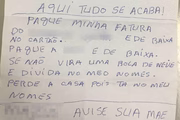 AQUI TUDO SE ACABA!
PAGUE MINHA FATURA
DO
NO CARTÃO. E DE BAIXA
PAGUE A E DE BAIXA.
SE NÃO VIRA UMA BOCA DE NEVE
E DIVIDA NO MEU NOMES.
PERDE A CASA POIS TA NO MEU
NOMES
AVISE SUA MAE